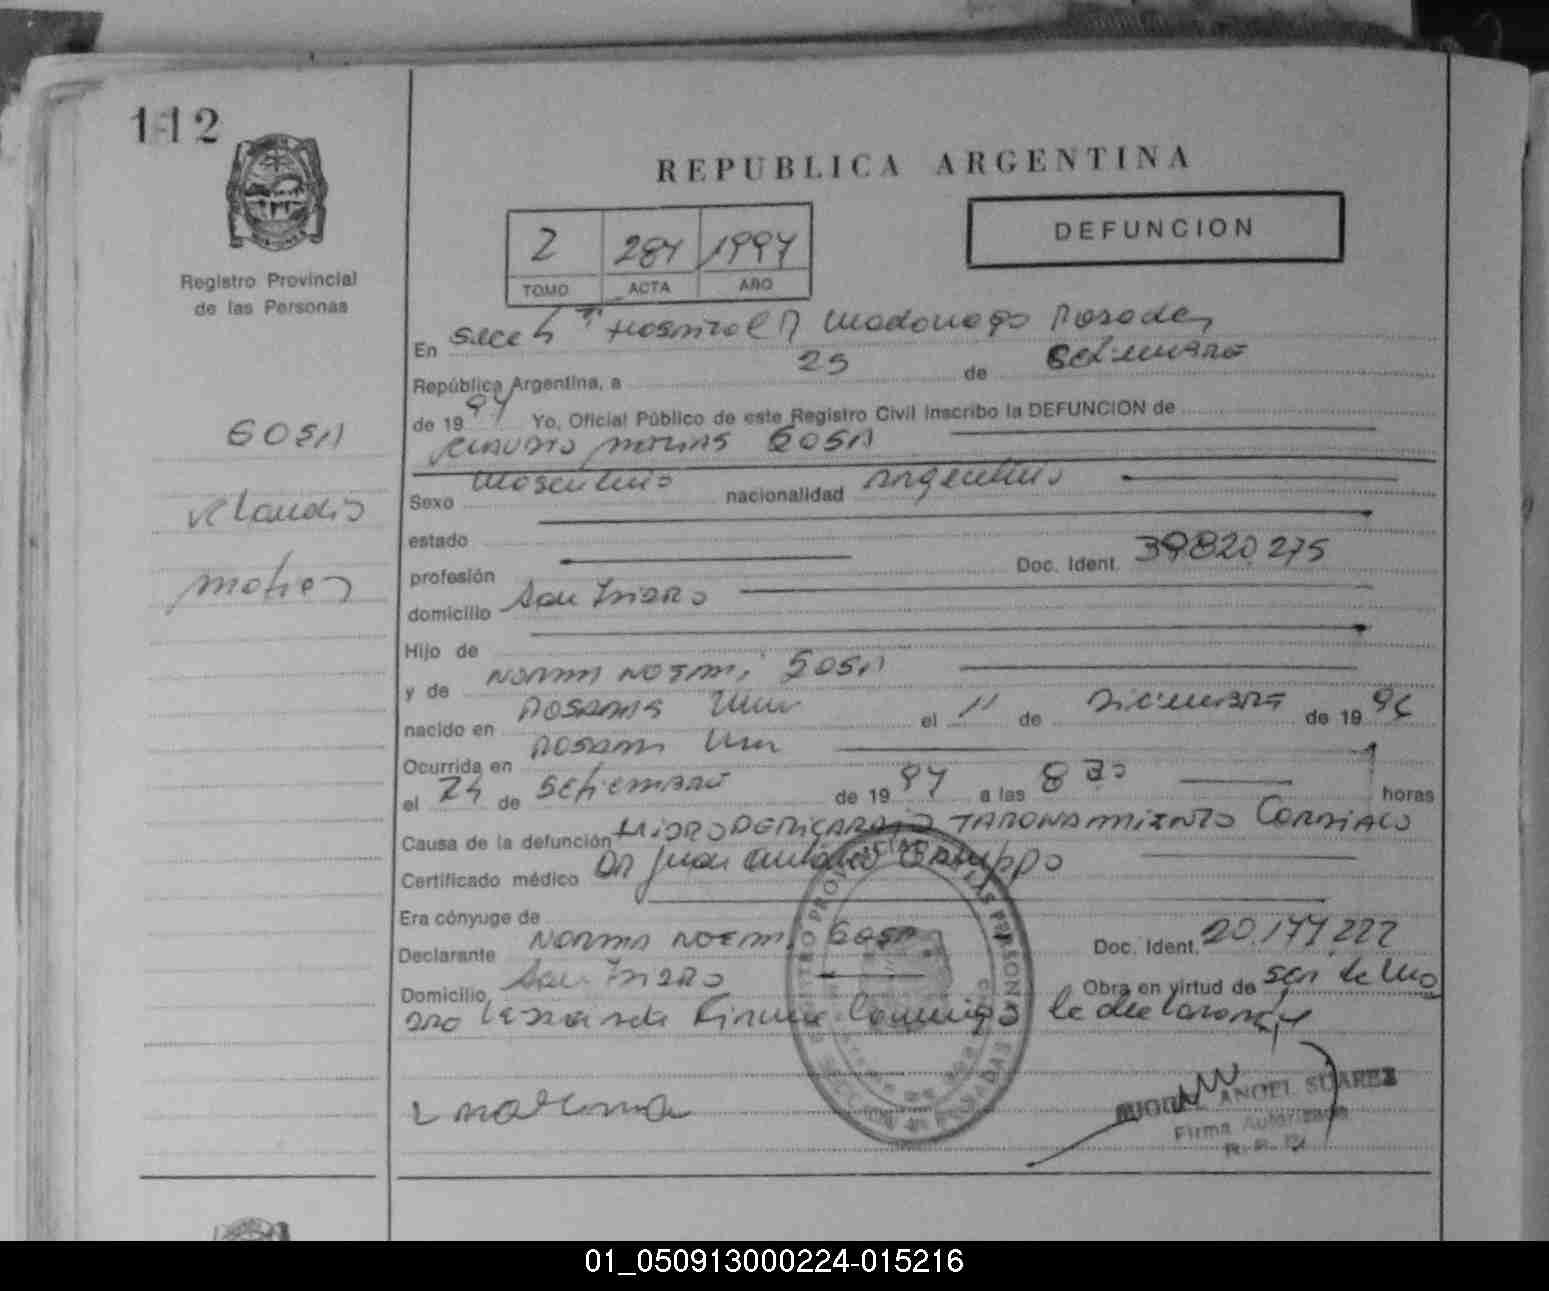 112
REPUBLICA ARGENTINA
DEFUNCION
Registro Provincial
de las Personas
2 284 1997
TOMO ACTA AÑO
En Secc Hospital R Madariaga Posadas
República Argentina, a 25 de Setiembre
de 1997 Yo, Oficial Público de este Registro Civil inscribo la DEFUNCION de
CLAUDIO MATIAS SOSA
SOSA
Claudio
Matias
Sexo Masculino nacionalidad Argentino
estado
profesión Doc. Ident. 39.820.275
domicilio San Isidro
Hijo de
y de NORMA NOEMI SOSA
nacido en POSADAS Mnes el 11 de Diciembre de 1996
Ocurrida en POSADAS Mnes
el 24 de Setiembre de 1997 a las 8 30 horas
Causa de la defunción HIDROPERICARDIO TAPONAMIENTO CARDIACO
Certificado médico DR Juan
Era cónyuge de
Declarante NORMA NOEMI SOSA Doc. Ident. 20.177.222
Domicilio San Isidro Obra en virtud de ser la
Leida Firma Conmigo la declarante
REGISTRO PROVINCIAL DE LAS PERSONAS
MIGUEL ANGEL SUAREZ
Firma Autorizada
R. P. P.
01_050913000224-015216